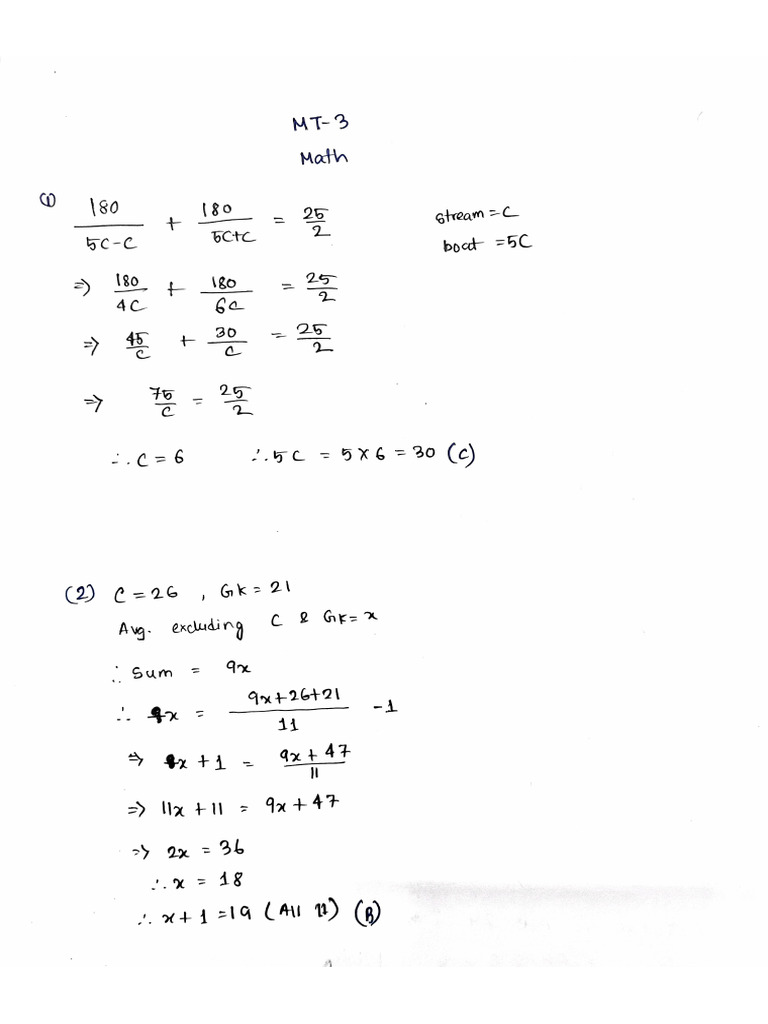 MT-3
Math
(1) 180/(5C-C) + 180/(5C+C) = 25/2
stream = C
boat = 5C
=> 180/4C + 180/6C = 25/2
=> 45/C + 30/C = 25/2
=> 75/C = 25/2
∴ C = 6 ∴ 5C = 5 × 6 = 30 (C)
(2) C = 26 , GK = 21
Avg. excluding C & GK = x
∴ Sum = 9x
∴ x = (9x+26+21)/11 - 1
=> x + 1 = (9x + 47)/11
=> 11x + 11 = 9x + 47
=> 2x = 36
∴ x = 18
∴ x + 1 = 19 (All 11) (B)